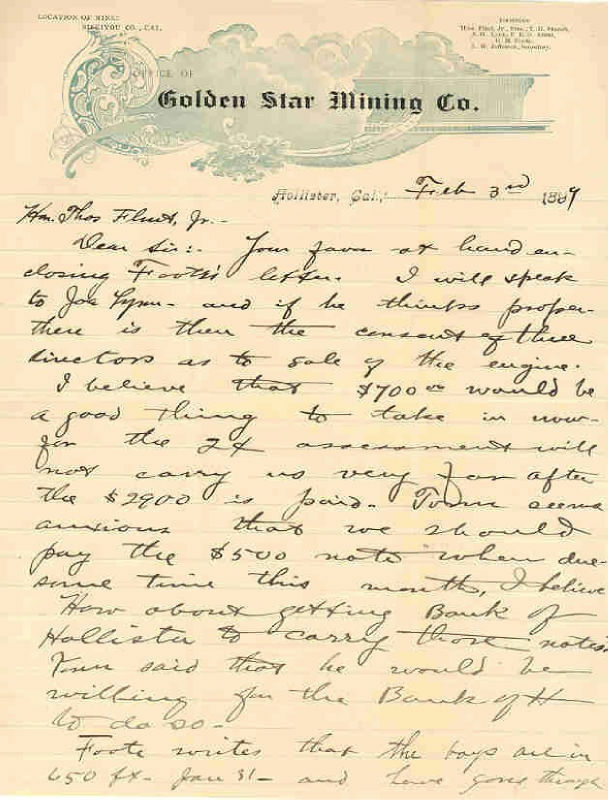 LOCATION OF MINE:
SISKIYOU CO., CAL.
DIRECTORS
Thos. Flint, Jr., Pres.
Secretary.
OFFICE OF
Golden Star Mining Co.
Hollister, Cal., Feb 3rd 1899
Hon. Thos Flint, Jr.-
Dear Sir:- Your favor at hand en-
closing Foote's letter. I will speak
to Joe Lynn - and if he thinks proper
there is then the consent of three
directors as to sale of the engine.
I believe that $700 00 would be
a good thing to take in now-
for the 2¢ assessment will
not carry us very far after
the $2900 is paid. seems
anxious that we should
pay the $500 note when due-
some time this month, I believe
How about getting Bank of
Hollister to carry those notes.
said that he would be
willing for the Bank of H
to do so-
Foote writes that the boys are in
650 ft- Jan 31- and have gone through